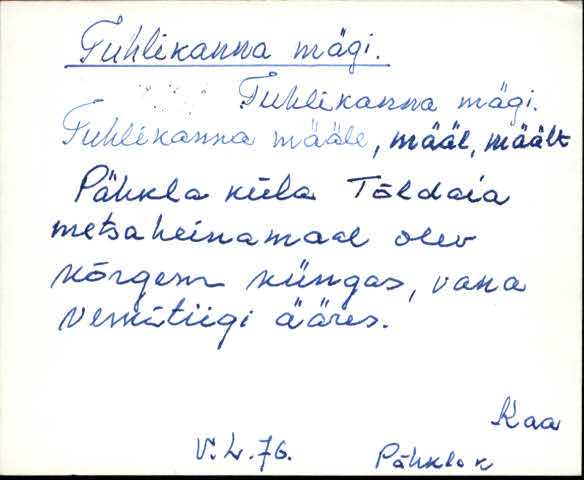 Tuhlikanna mägi.
Tuhlikanna mägi.
Tuhlikanna määle, määl, mäält
Pähkla küla Tõldaia
metsaheinamaal olev
kõrgem küngas, vana
veskitiigi ääres.
Kaa
V. L. 76.
Pähkla k